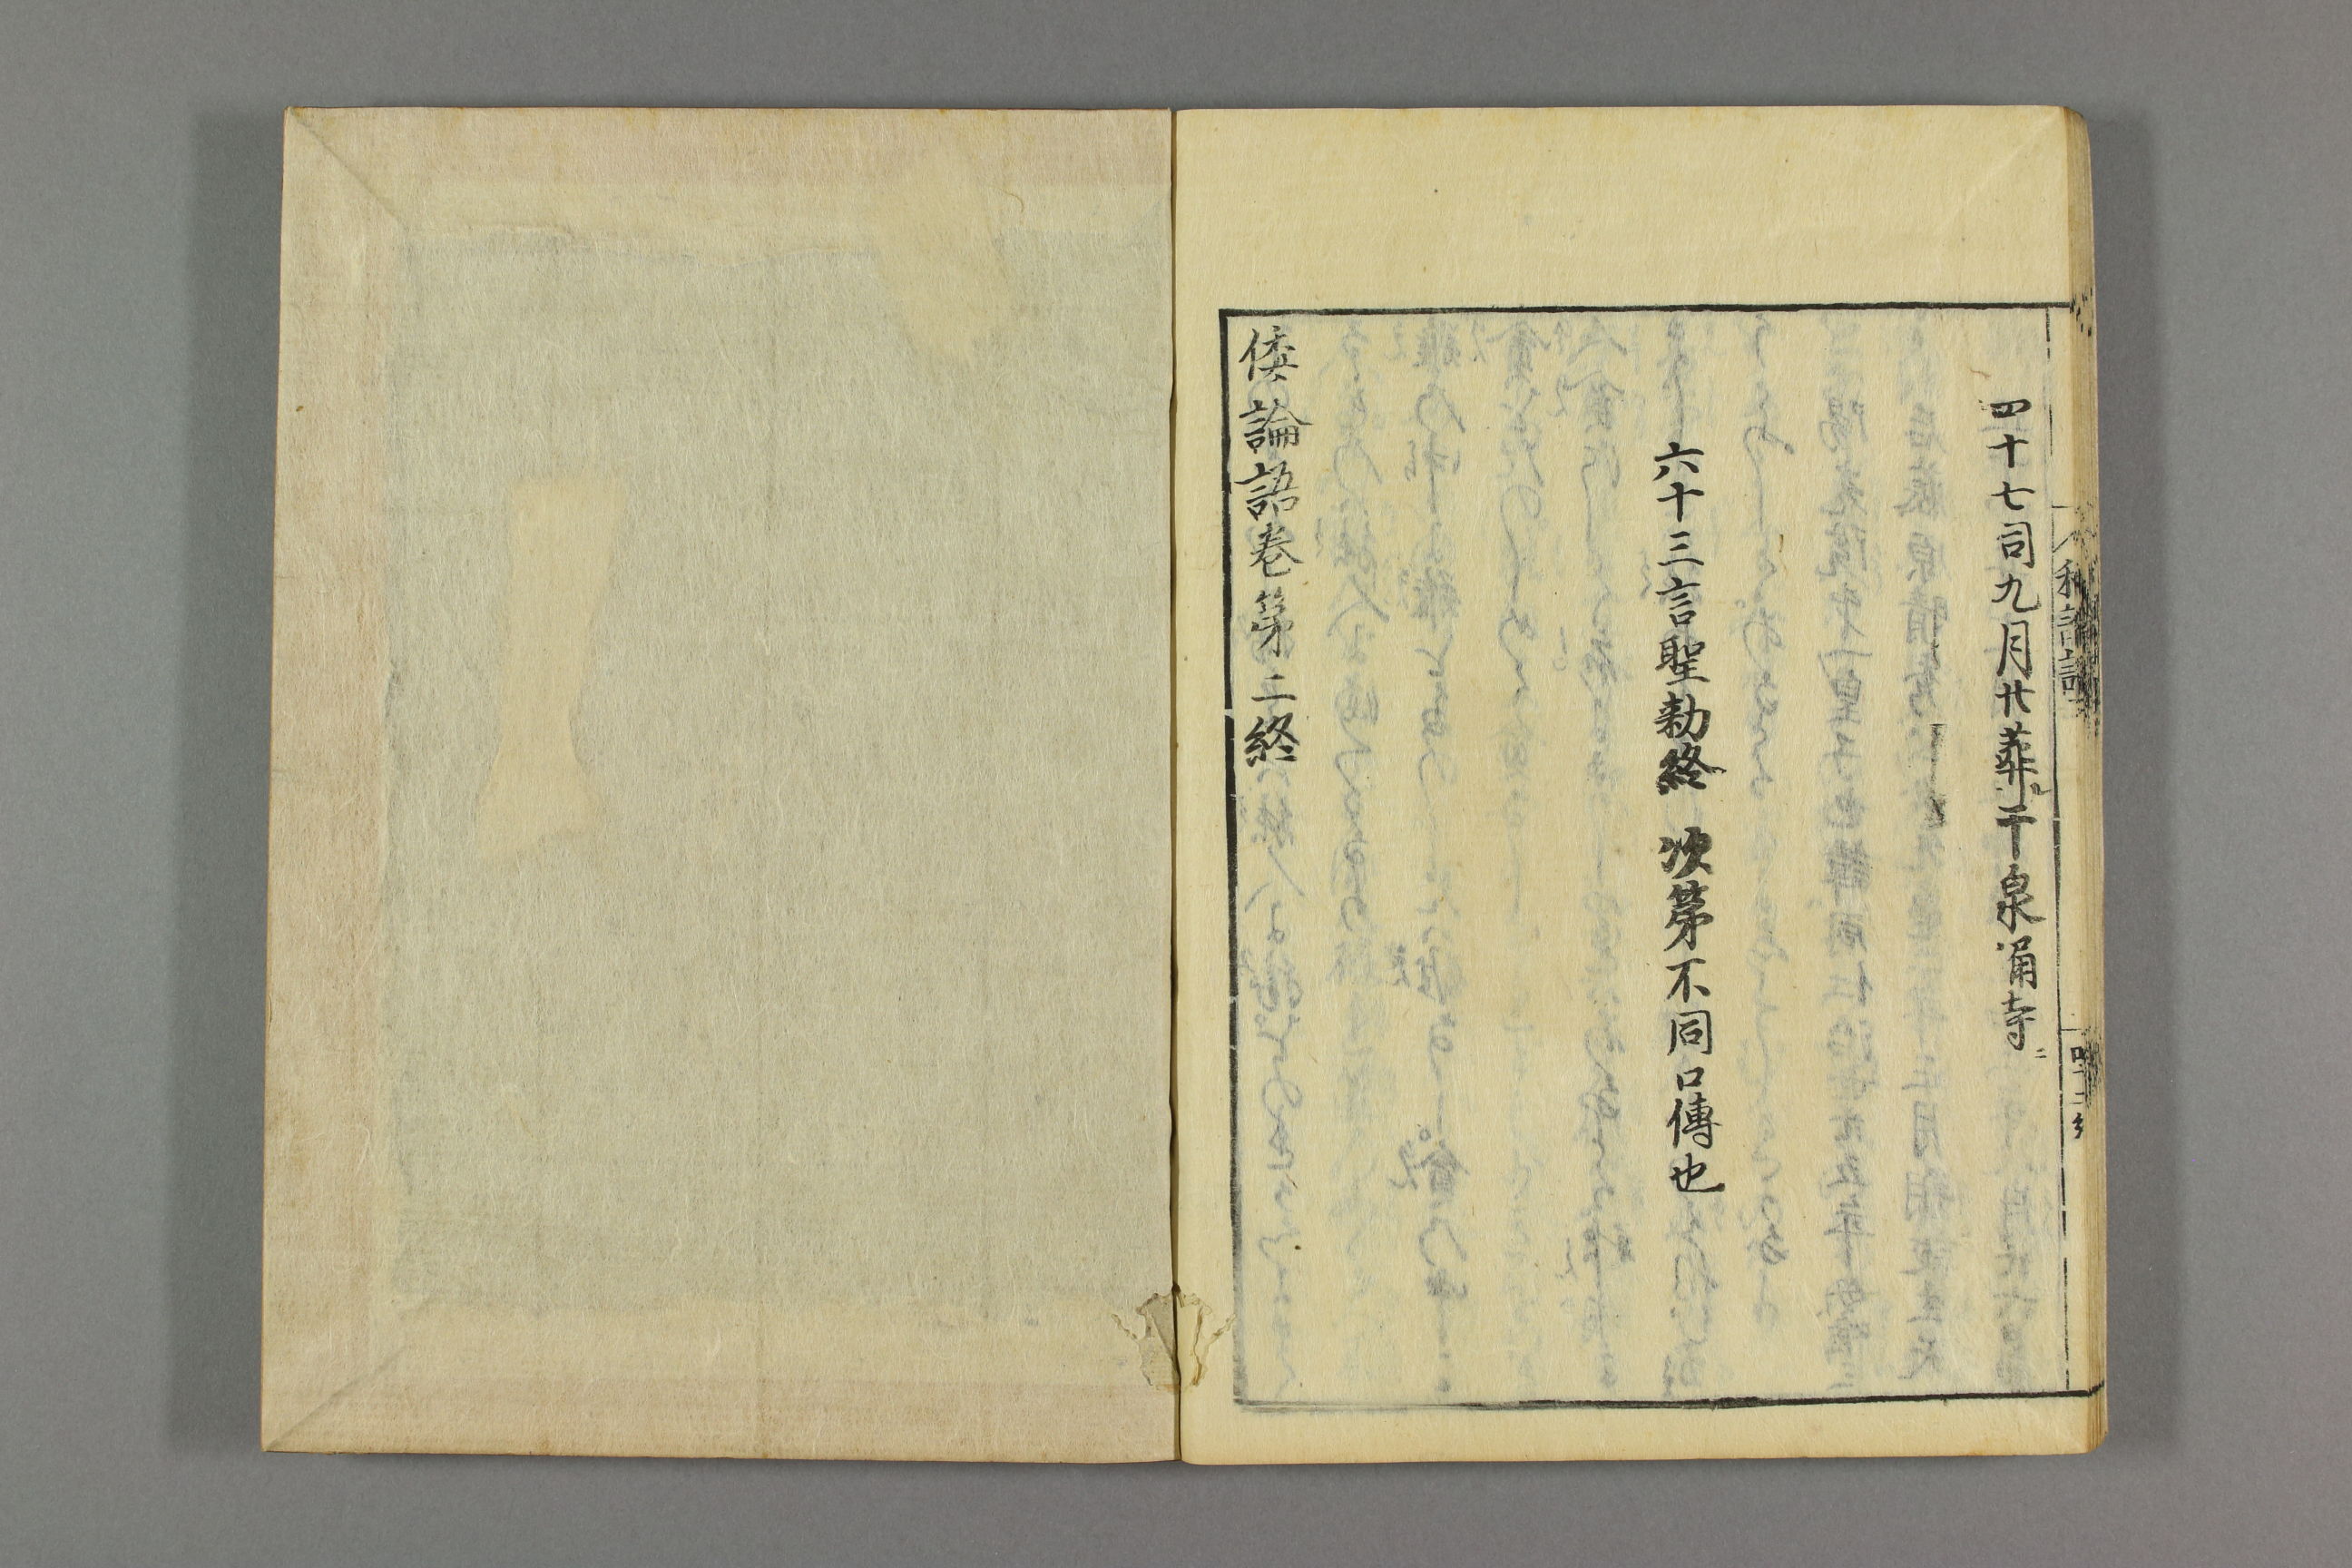 四十七司九月廿葬于泉涌寺
六十三言聖勅終　次第不同口傳也
倭論語巻第二終
和論語